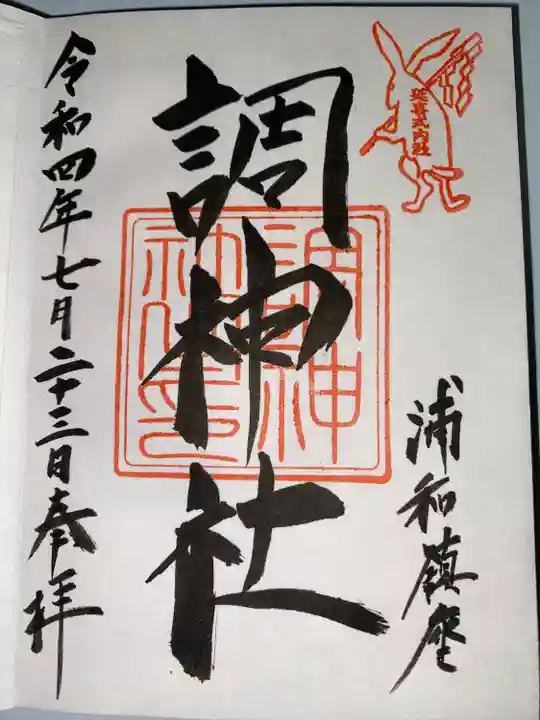 延喜式内社
浦和鎮座
調神社
調神
社印
令和四年七月二十三日奉拝